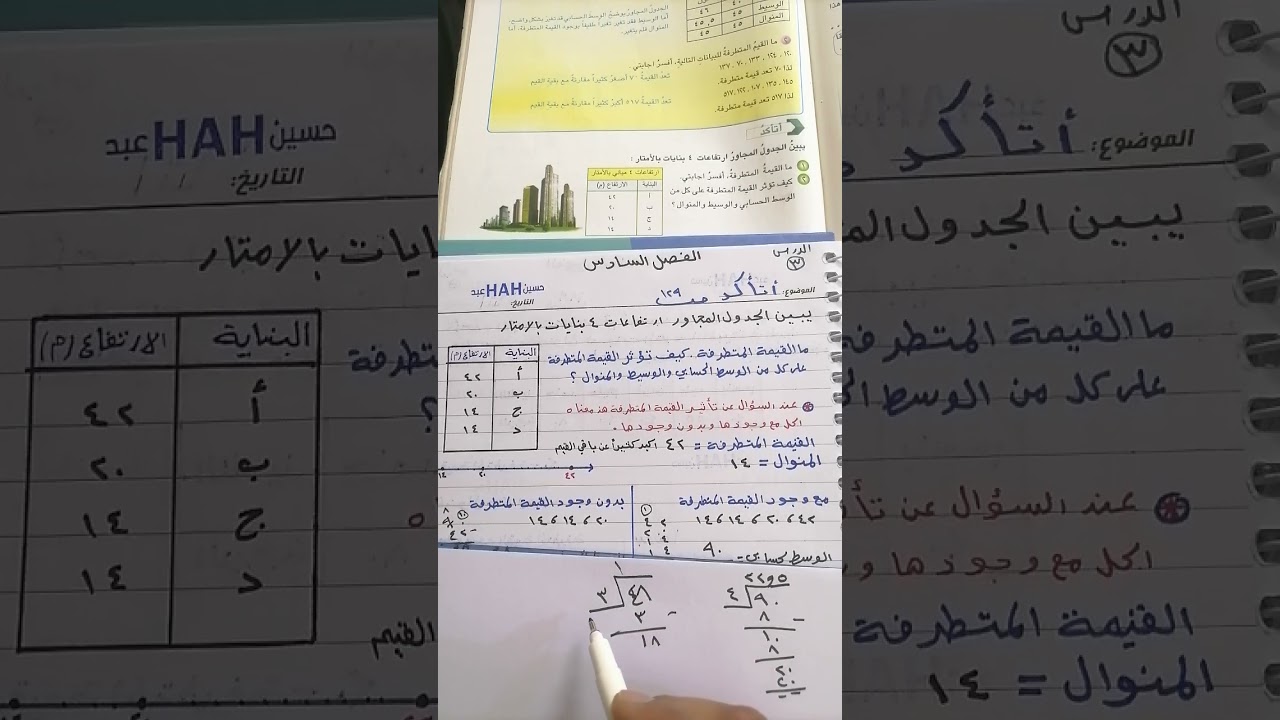 الوسيط
٤٠
المنوال
٤٥
٤٥
الجدول المجاور يوضح الوسط الحسابي قد تغير بشكل واضح،
أما الوسيط فقد تغير تغيراً طفيفاً بوجود القيمة المتطرفة، أما
المنوال فلم يتغير.
ما القيم المتطرفة للبيانات التالية، أفسر اجابتي
١٢٠ ، ١٢٤ ، ١٣٣ ، ٧٠ ، ١٣٧
تعد القيمة ٧٠ أصغر كثيراً مقارنة مع بقية القيم
لذا ٧٠ تعد قيمة متطرفة.
١٤٥ ، ١٣٥ ، ١٠٧ ، ١٢٢ ، ٥١٧
تعد القيمة ٥١٧ أكبر كثيراً مقارنة مع بقية القيم
لذا ٥١٧ تعد قيمة متطرفة.
أتأكد
يبين الجدول المجاور ارتفاعات ٤ بنايات بالأمتار :
١ ما القيمة المتطرفة، أفسر اجابتي.
٢ كيف تؤثر القيمة المتطرفة على كل من
الوسط الحسابي والوسيط والمنوال ؟
ارتفاعات ٤ مباني بالأمتار
البناية الارتفاع (م)
أ ٤٢
ب ٢٠
ج ١٤
د ١٤
الدرس
٣
الفصل السادس
حسين HAH عبد
التاريخ:
الموضوع: أتأكد ص ١٢٩
يبين الجدول المجاور ارتفاعات ٤ بنايات بالامتار
ما القيمة المتطرفة . كيف تؤثر القيمة المتطرفة
على كل من الوسط الحسابي والوسيط والمنوال ؟
البناية الارتفاع (م)
أ ٤٢
ب ٢٠
ج ١٤
د ١٤
عند السؤال عن تأثير القيمة المتطرفة هذ معناه
احل مع وجودها وبدون وجودها .
القيمة المتطرفة = ٤٢ اكبر كثيراً عن باقي القيم
المنوال = ١٤
١٤ ٢٠ ٤٢
مع وجود القيمة المتطرفة
٤٢ ، ٢٠ ، ١٤ ، ١٤
بدون وجود القيمة المتطرفة
٢٠ ، ١٤ ، ١٤
الوسط حسابي =
٩٠
٢٢٫٥
٤ ٩٠
٨ -
١٠
٨
٢٠
٢٠
١
٣ ٤٨
٣ -
١٨